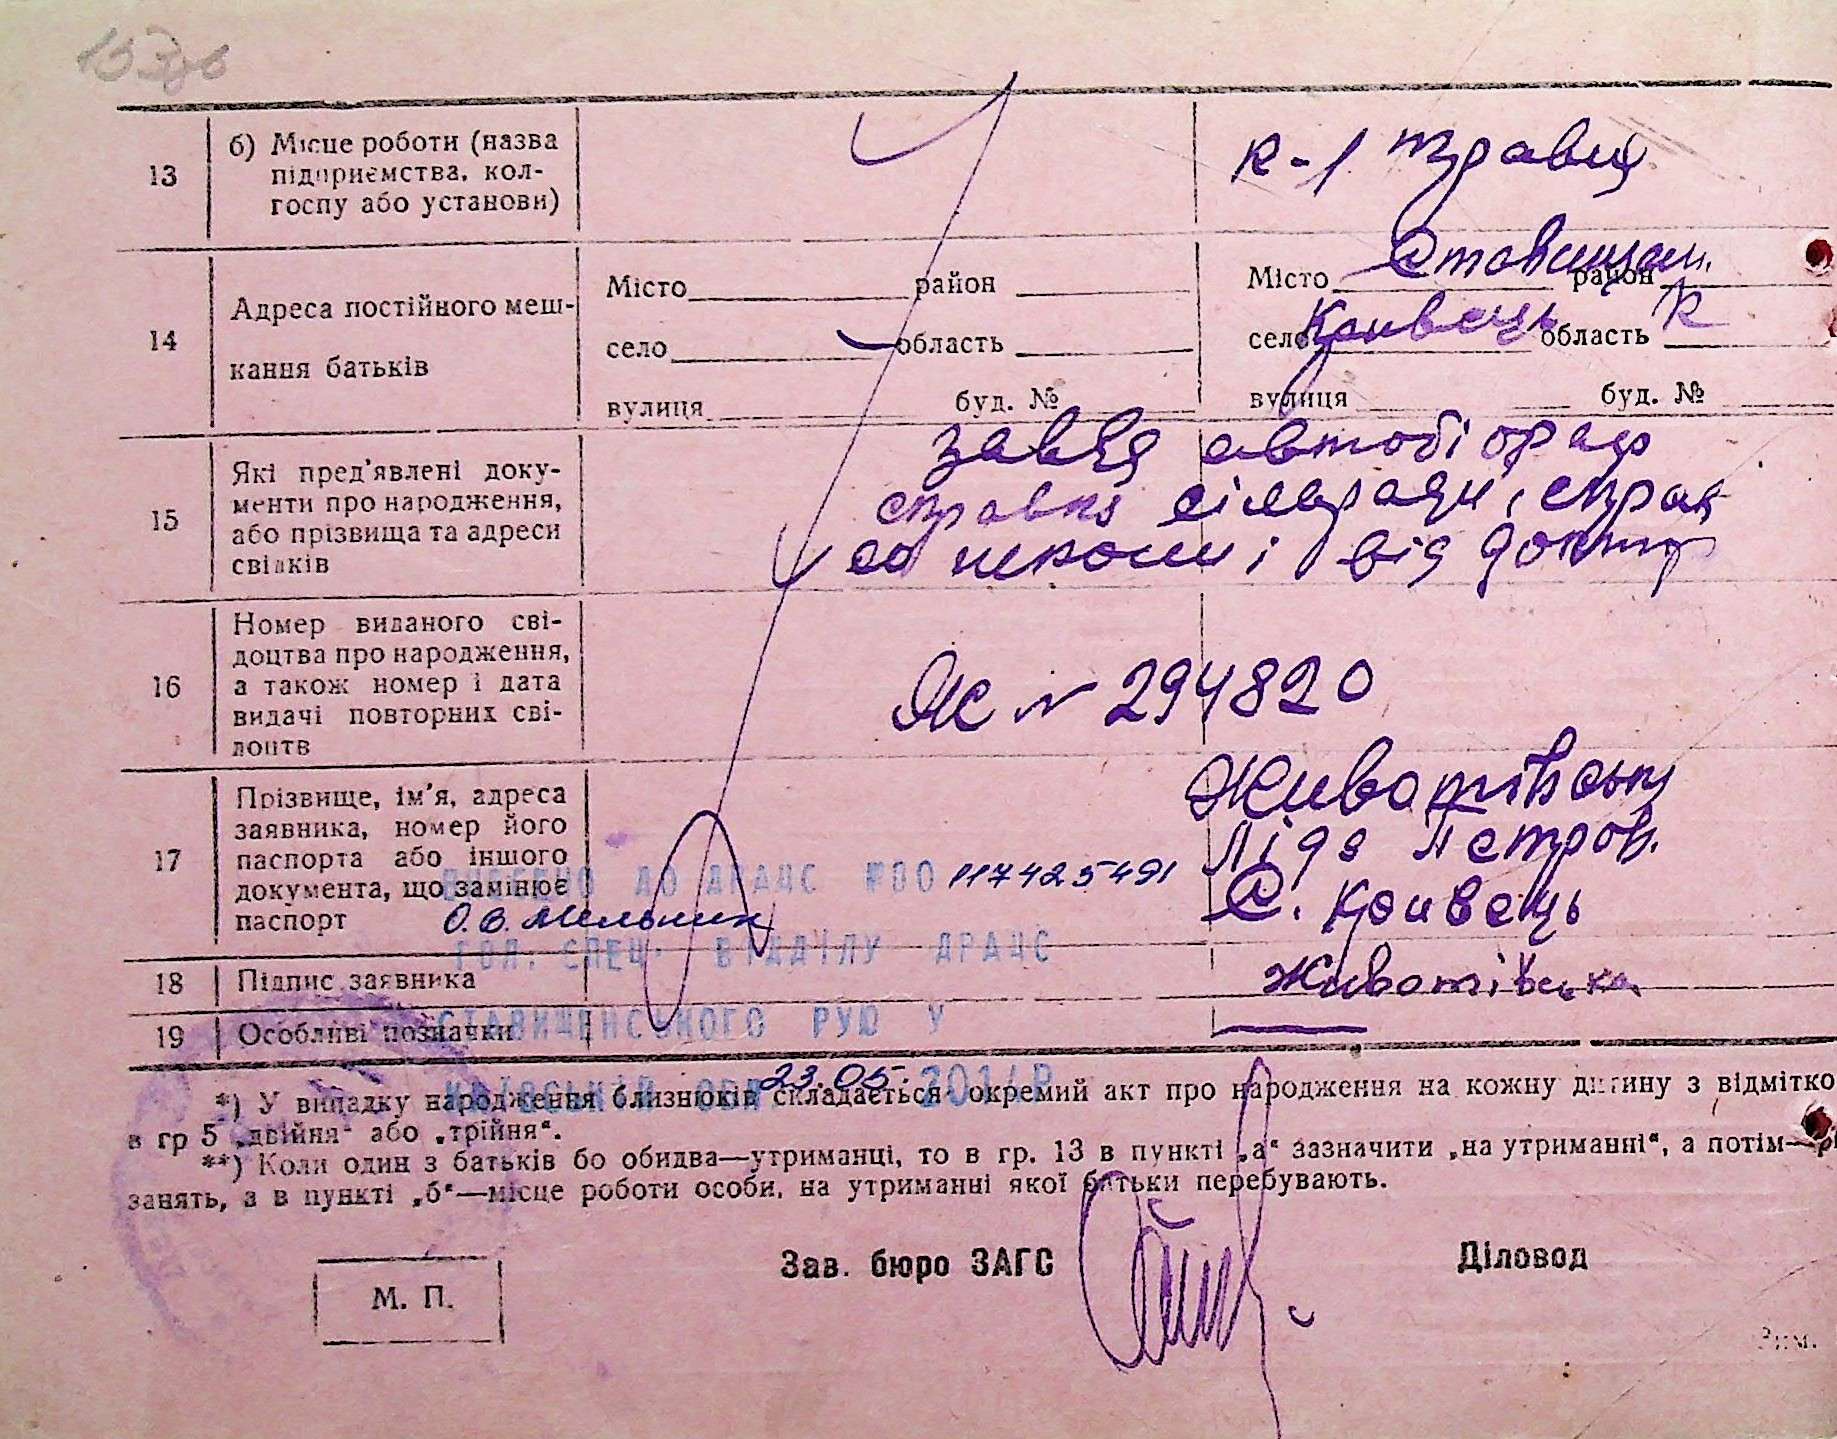 13
б) Місце роботи (назва
підприємства, кол-
госпу або установи)
к-1
14
Адреса постійного меш-
кання батьків
Місто район
село область
вулиця буд. №
Місто Ставищан. район
село Кривець область К
вулиця буд. №
15
Які пред'явлені доку-
менти про народження,
або прізвища та адреси
свідків
заява автобіограф
справка сільради, справ
со школи і від доктор
16
Номер виданого сві-
доцтва про народження,
а також номер і дата
видачі повторних сві-
доцтв
ЯЖ № 294820
17
Прізвище, ім'я, адреса
заявника, номер його
паспорта або іншого
документа, що замінює
паспорт
Животівськ
Ліда Петров.
С. Кривець
ВНЕСЕНО ДО ДРАЦС №00 117425491
О.В. Мельник
ГОЛ. СПЕЦ. ВІДДІЛУ ДРАЦС
18
Підпис заявника
Животівська
19
Особливі позначки
СТАВИЩЕНСЬКОГО РУЮ У
КИЇВСЬКІЙ ОБЛ. 23.05. 2014Р
*) У випадку народження близнюків складається окремий акт про народження на кожну дитину з відмітко
в гр 5 „двійня" або „трійня".
**) Коли один з батьків бо обидва—утриманці, то в гр. 13 в пункті „а" зазначити „на утриманні", а потім—
занять, з в пункті „б"—місце роботи особи, на утриманні якої батьки перебувають.
Зав. бюро ЗАГС
Діловод
М. П.